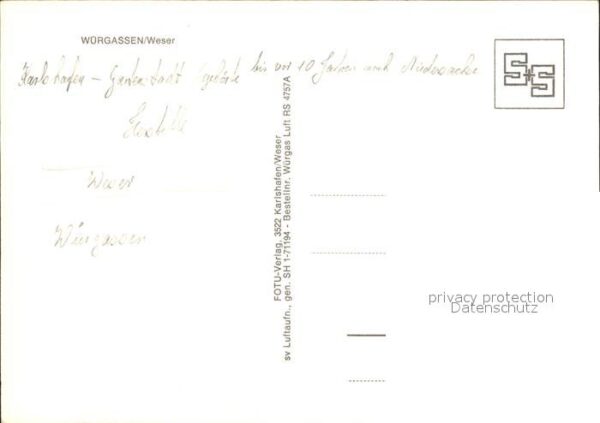 WÜRGASSEN/Weser
Karlshafen – Gartenstadt gehörte bis vor 10 Jahren nach Niedersachs
Weser
Würgassen
FOTU-Verlag, 3522 Karlshafen/Weser
sv Luftaufn., gen. SH 1-71194 - Bestellnr. Würgas Luft RS 4757A
S+S
privacy protection
Datenschutz